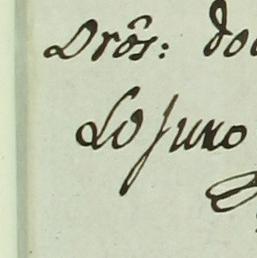 Drôs: do
Lo juro